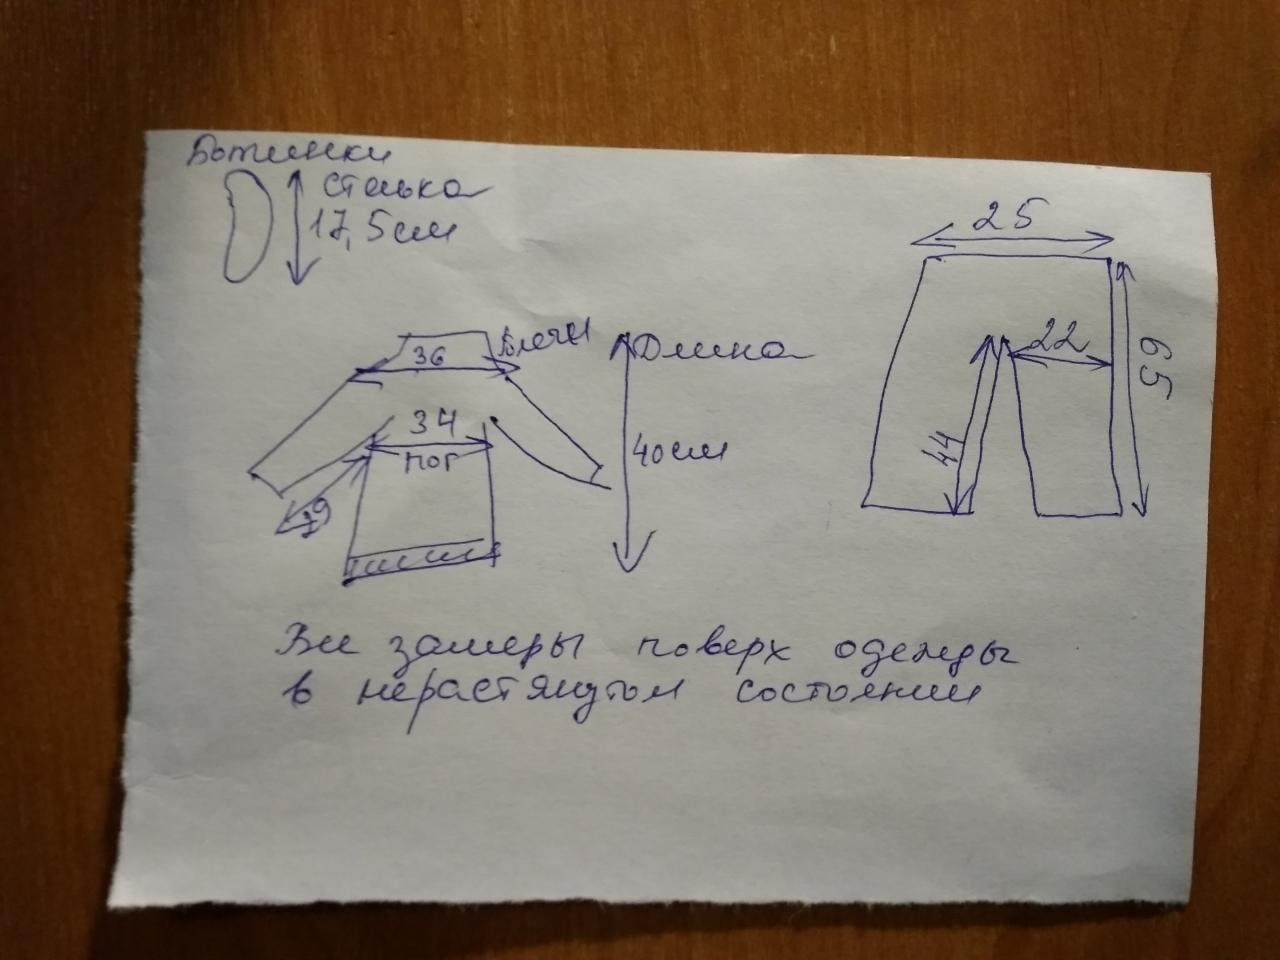 Ботинки
стелька
17,5см
25
36
плечи
Длина
22
65
34
пог
40см
44
Все замеры поверх одежды
в нерастянутом состоянии